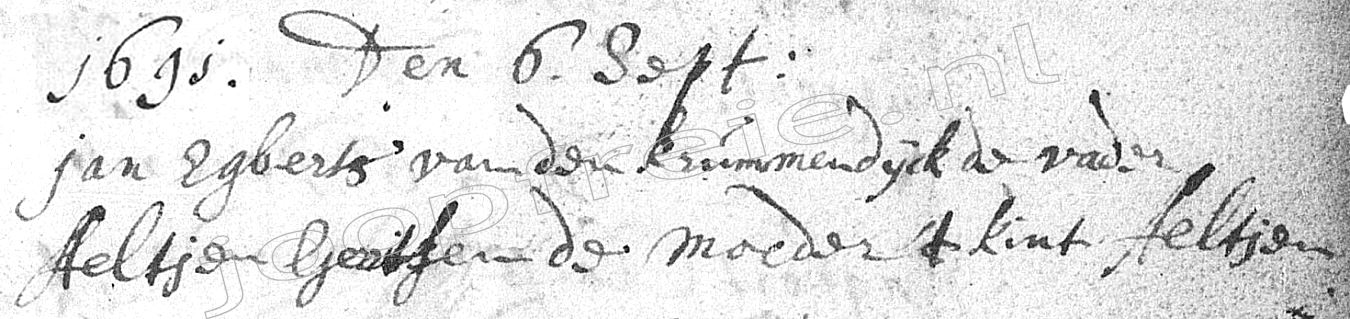 1691. Den 6. Sept:
jan Egberts van den krummendijck de vader
feltjen Gerritsen de moeder t kint feltjen
joopreie.nl